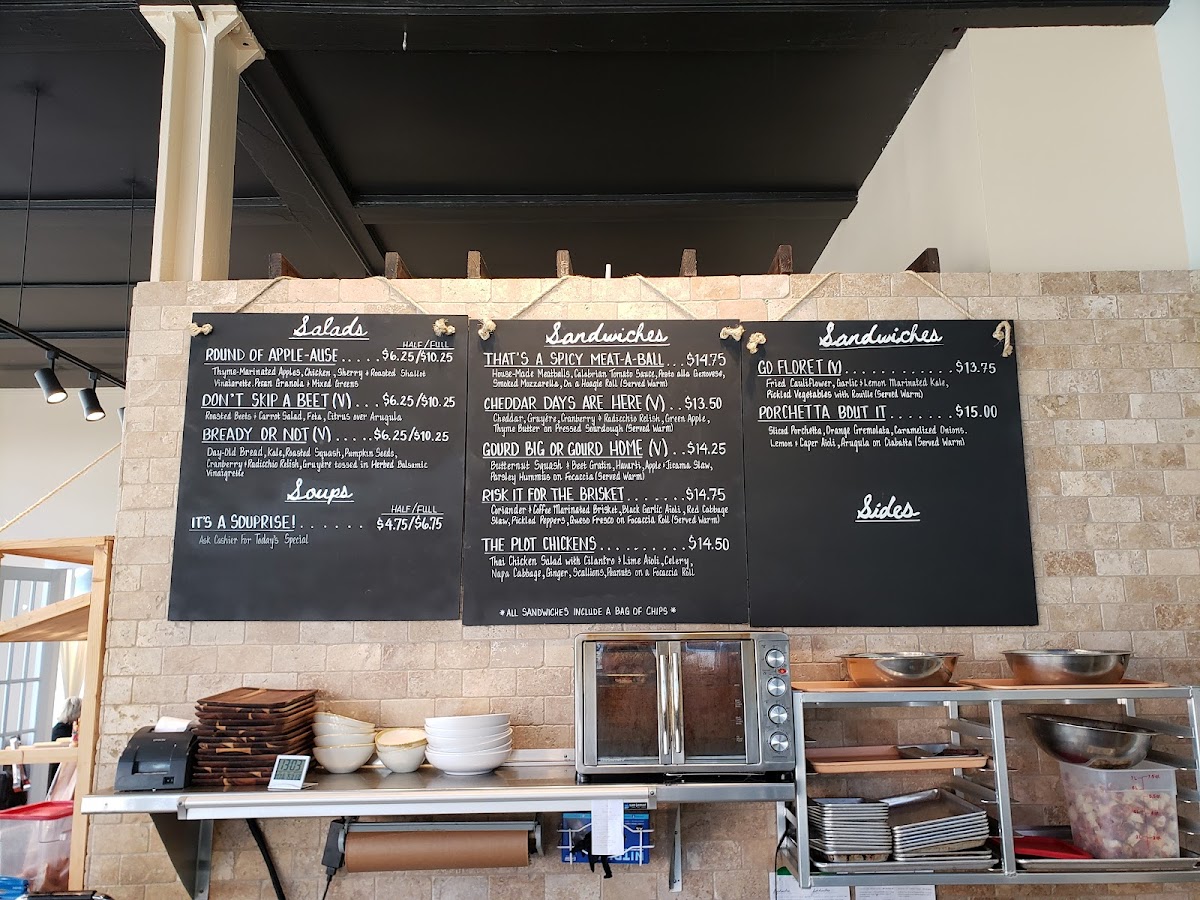 Salads
HALF/FULL
ROUND OF APPLE-AUSE.....$6.25/$10.25
Thyme-Marinated Apples, Chicken, Sherry + Roasted Shallot
Vinaigrette, Pecan Granola + Mixed Greens
DON'T SKIP A BEET (V)....$6.25/$10.25
Roasted Beets + Carrot Salad, Feta, Citrus over Arugula
BREADY OR NOT (V).....$6.25/$10.25
Day-Old Bread, Kale, Roasted Squash, Pumpkin Seeds,
Cranberry + Radicchio Relish, Gruyère tossed in Herbed Balsamic
Vinaigrette
Soups
HALF/FULL
IT'S A SOUPRISE!.......$4.75/$6.75
Ask Cashier For Today's Special
Sandwiches
THAT'S A SPICY MEAT-A-BALL...$14.75
House-Made Meatballs, Calabrian Tomato Sauce, Pesto alla Genovese,
Smoked Mozzarella, On a Hoagie Roll (Served Warm)
CHEDDAR DAYS ARE HERE (V)..$13.50
Cheddar, Gruyère, Cranberry + Radicchio Relish, Green Apple,
Thyme Butter on Pressed Sourdough (Served Warm)
GOURD BIG OR GOURD HOME (V)..$14.25
Butternut Squash + Beet Gratin, Havarti, Apple + Jicama Slaw,
Parsley Hummus on Focaccia (Served Warm)
RISK IT FOR THE BRISKET.......$14.75
Coriander + Coffee Marinated Brisket, Black Garlic Aioli, Red Cabbage
Slaw, Pickled Peppers, Queso Fresco on Focaccia Roll (Served Warm)
THE PLOT CHICKENS..........$14.50
Thai Chicken Salad with Cilantro + Lime Aioli, Celery,
Napa Cabbage, Ginger, Scallions, Peanuts on a Focaccia Roll
*ALL SANDWICHES INCLUDE A BAG OF CHIPS*
Sandwiches
GO FLORET (V)..............$13.75
Fried Cauliflower, Garlic + Lemon Marinated Kale,
Pickled Vegetables with Rouille (Served Warm)
PORCHETTA BOUT IT........$15.00
Sliced Porchetta, Orange Gremolata, Caramelized Onions.
Lemon + Caper Aioli, Arugula on Ciabatta (Served Warm)
Sides